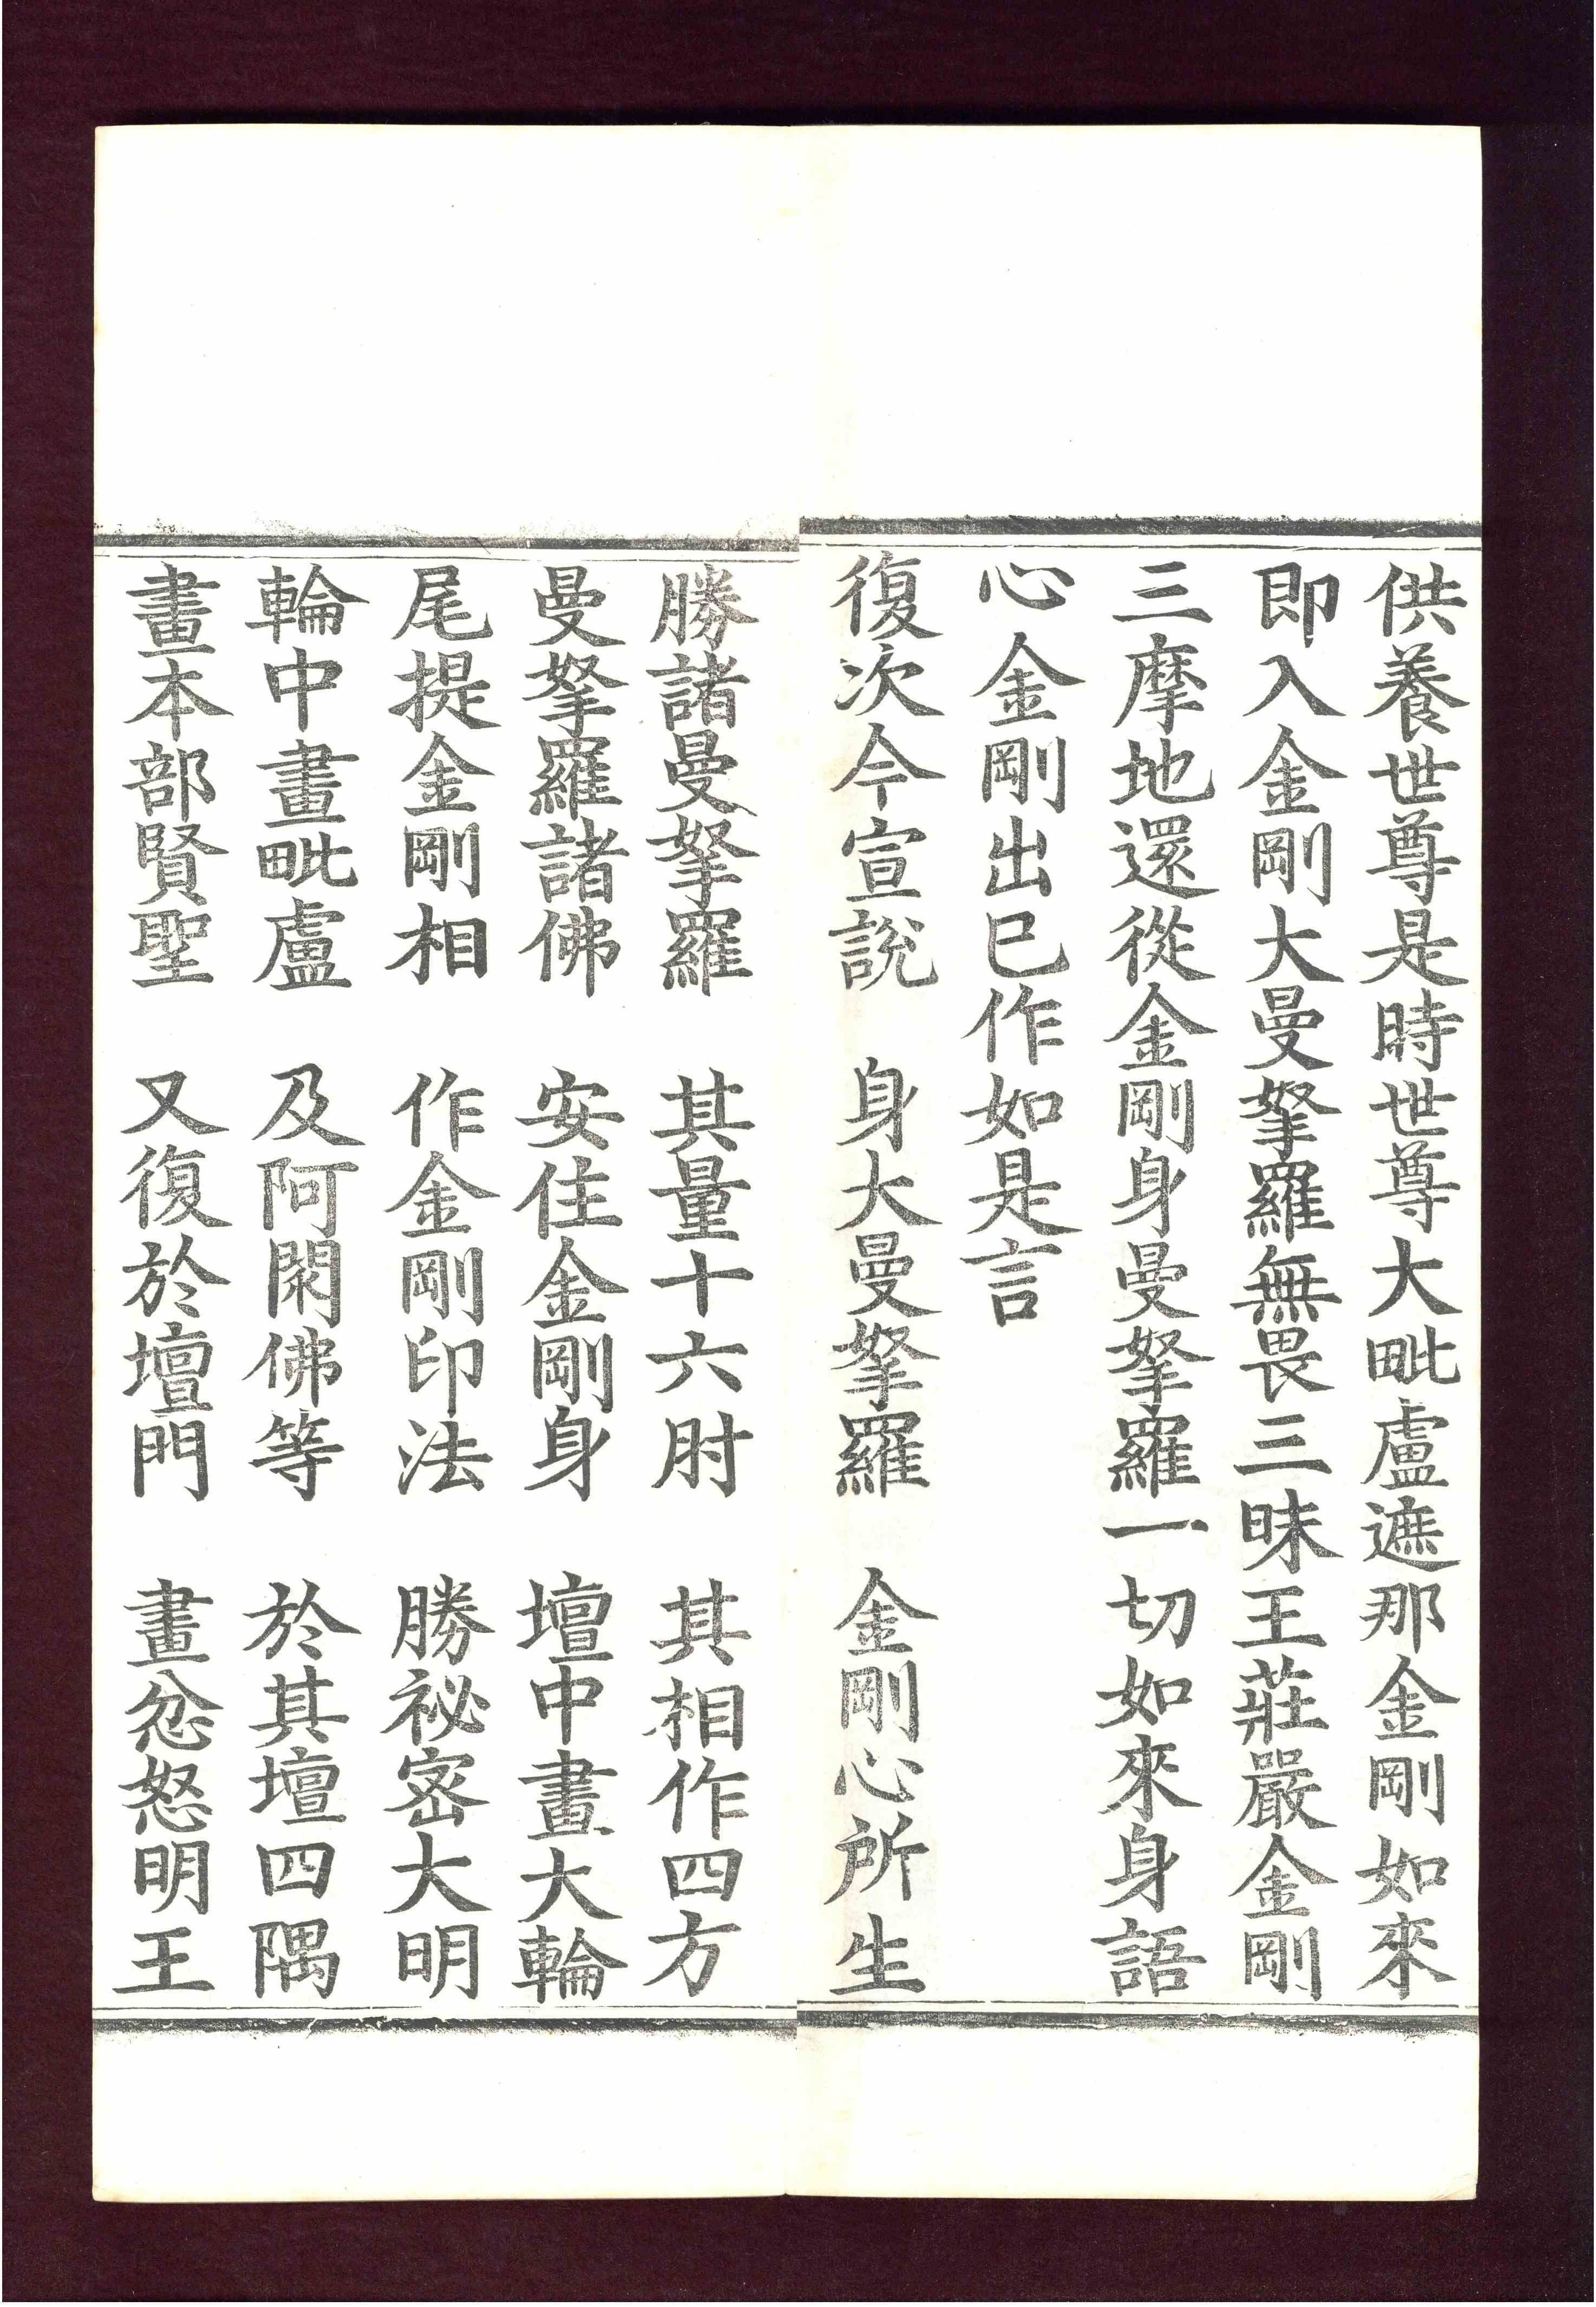 供養世尊是時世尊大毗盧遮那金剛如來
即入金剛大曼拏羅無畏三昧王莊嚴金剛
三摩地還從金剛身曼拏羅一切如來身語
心金剛出已作如是言
復次今宣說　身大曼拏羅　金剛心所生
勝諸曼拏羅　其量十六肘　其相作四方
曼拏羅諸佛　安住金剛身　壇中畫大輪
尾提金剛相　作金剛印法　勝祕密大明
輪中畫毗盧　及阿閦佛等　於其壇四隅
畫本部賢聖　又復於壇門　畫忿怒明王